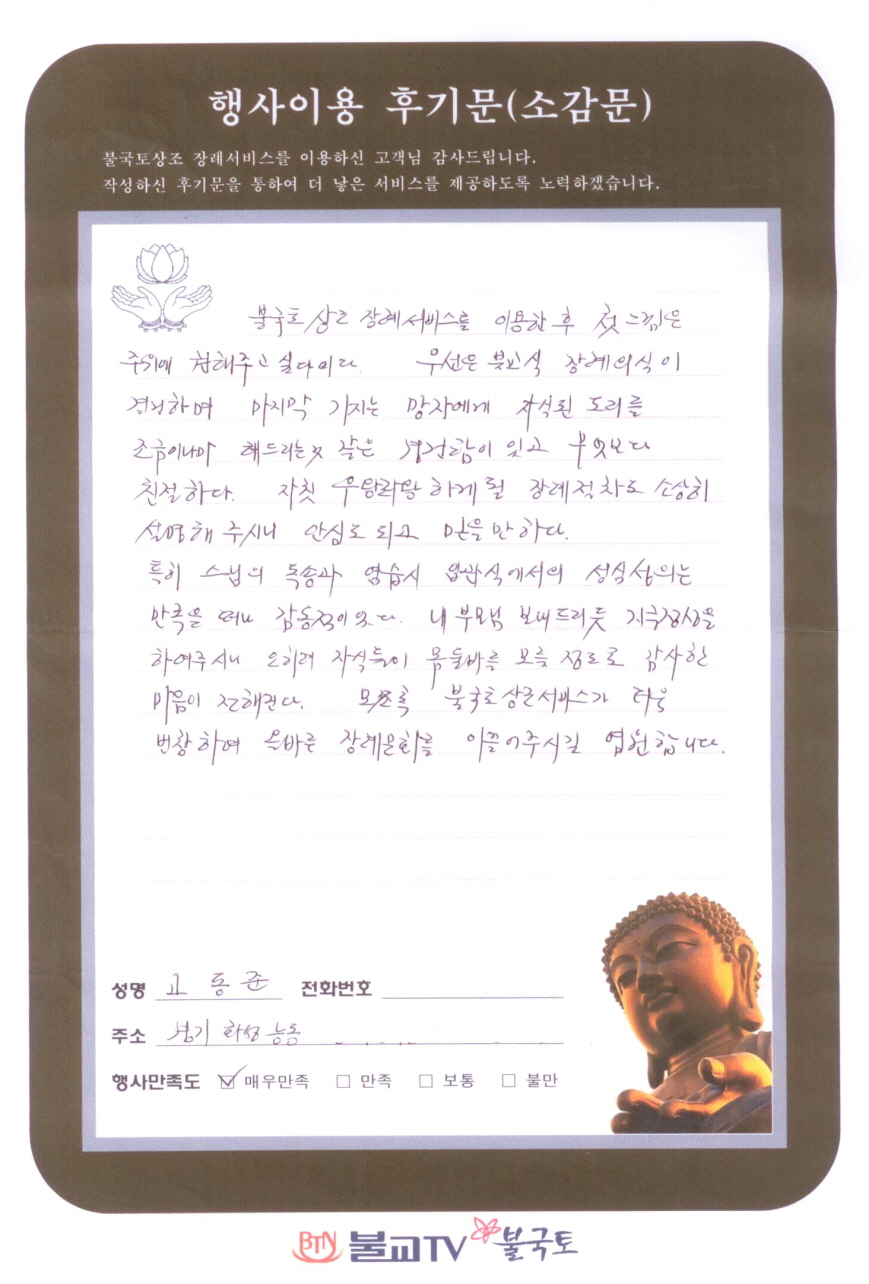 행사이용 후기문(소감문)
불국토상조 장례서비스를 이용하신 고객님 감사드립니다.
작성하신 후기문을 통하여 더 낳은 서비스를 제공하도록 노력하겠습니다.
불국토 상조 장례서비스를 이용한 후 첫 느낌은
주위에 권해주고 싶다이다. 우선은 불교식 장례의식이
경건하며 마지막 가지는 망자에게 자식된 도리를
조금이나마 해드리는것 같은 경건함이 있고 무엇보다
친절하다. 자칫 우왕좌왕 하게 될 장례절차도 소상히
설명해 주시니 안심도 되고 믿을만 하다.
특히 스님의 독송과 염습시 입관식에서의 성심성의는
만족을 떠나 감동적이었다. 내 부모님 보내드리듯 지극정성을
하여주시니 오히려 자식들이 몸둘바를 모를 정도로 감사한
마음이 전해진다. 모쪼록 불국토상조서비스가 더욱
번창하며 올바른 장례문화를 이끌어주시길 염원합니다.
성명 고동준 전화번호
주소 경기 화성 능동
행사만족도 ☑ 매우만족 □ 만족 □ 보통 □ 불만
BTN 불교TV 불국토